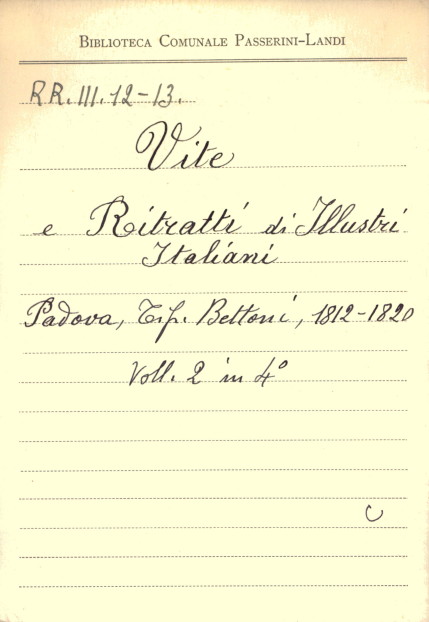 BIBLIOTECA COMUNALE PASSERINI-LANDI
RR. III. 12-13.
Vite
e Ritratti di Illustri
Italiani
Padova, Tip. Bettoni, 1812-1820
Voll. 2 in 4°
C